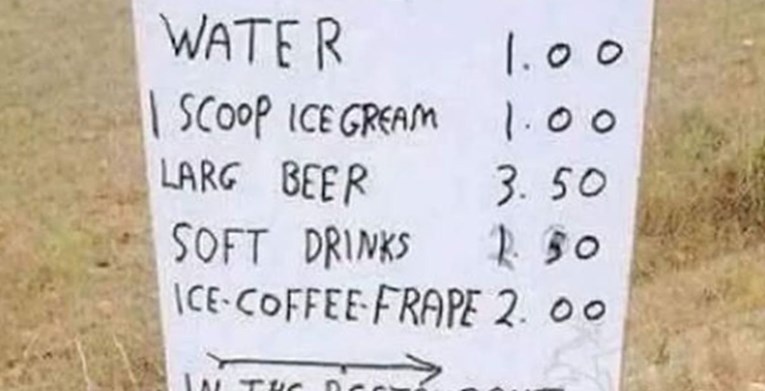 WATER 1.00
1 SCOOP ICE GREAM 1.00
LARG BEER 3.50
SOFT DRINKS 1.50
ICE-COFFEE-FRAPE 2.00
IN THE